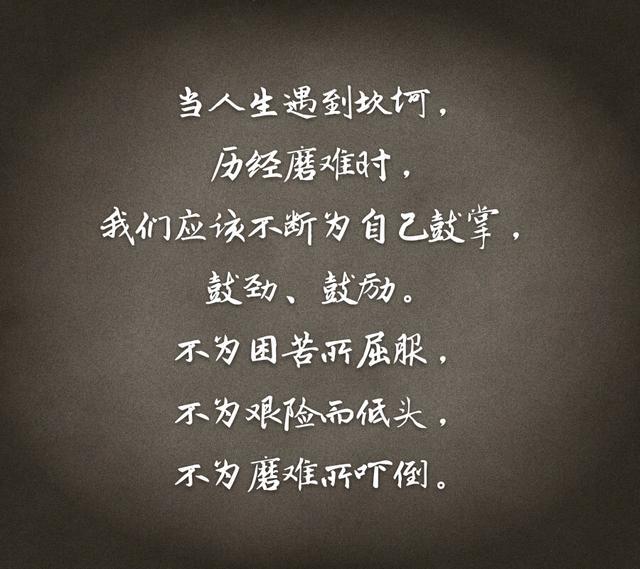 当人生遇到坎坷，
历经磨难时，
我们应该不断为自己鼓掌，
鼓劲、鼓励。
不为困苦所屈服，
不为艰险而低头，
不为磨难所吓倒。